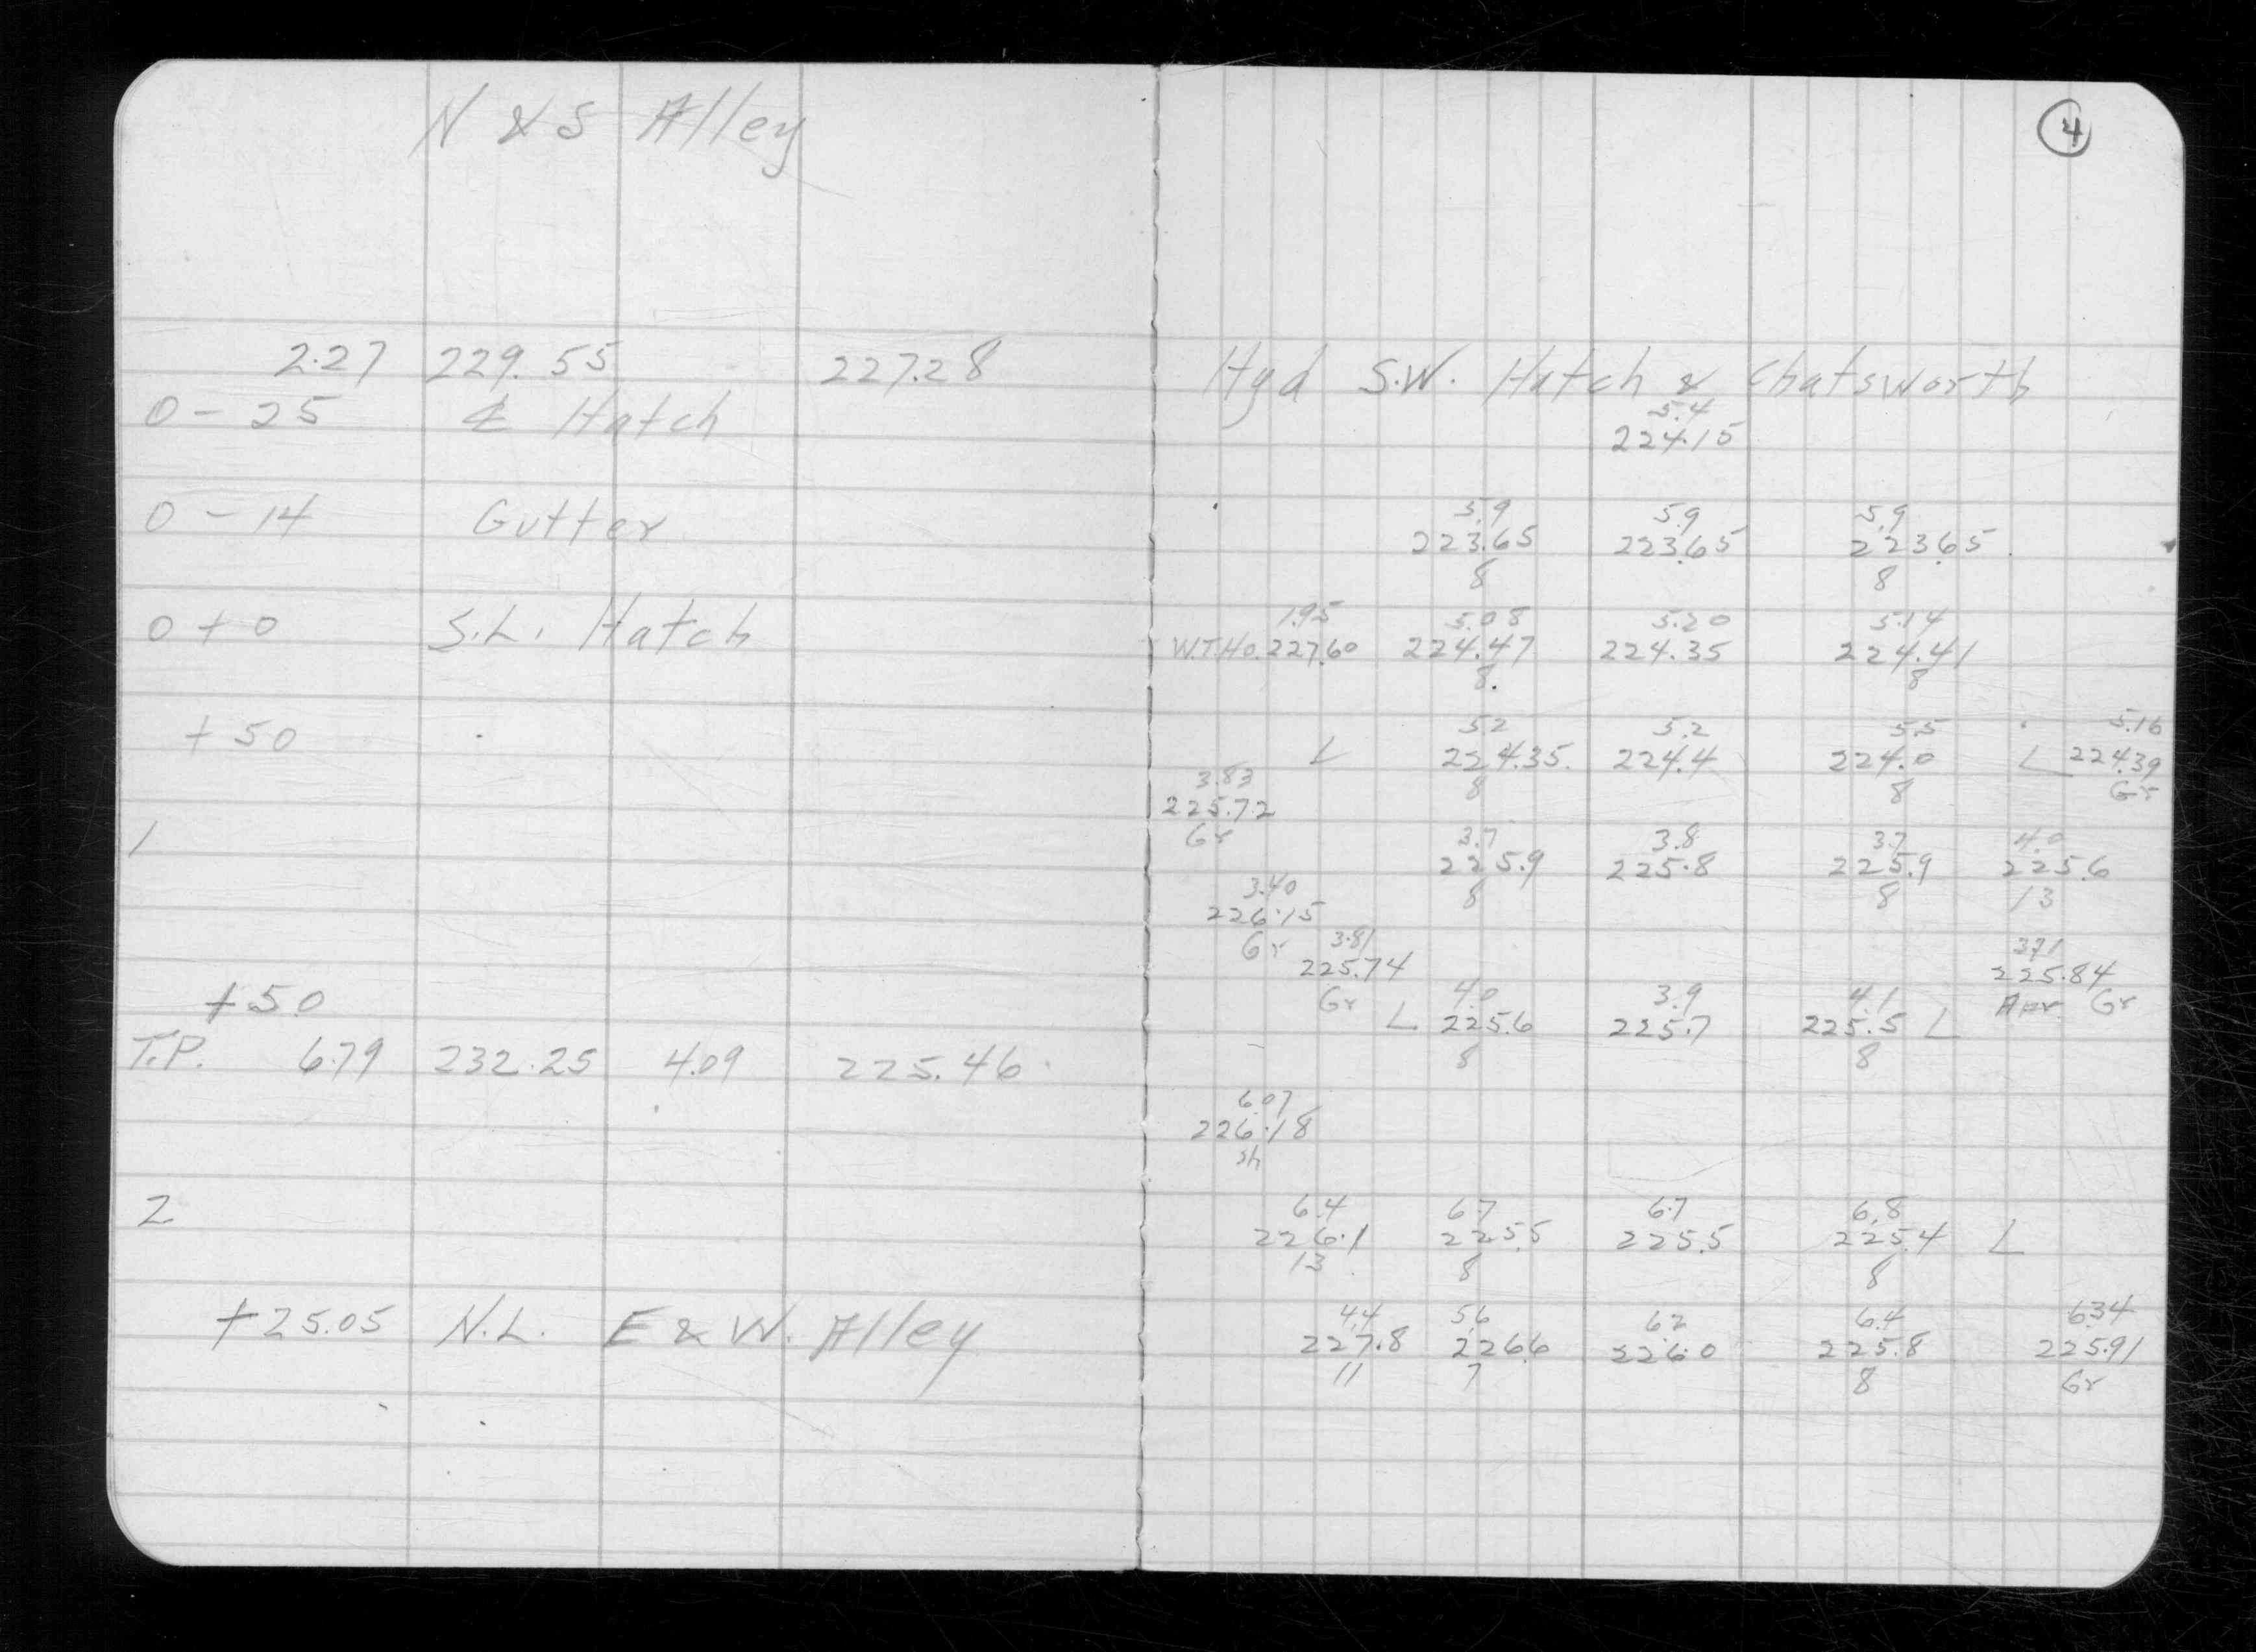 N & S Alley
4
2.27 229.55 227.28 Hyd S.W. Hatch & Chatsworth
5.4
0 - 25 ℄ Hatch 224.15
5.9 5.9 5.9
0 - 14 Gutter 223.65 223.65 223.65
8 8
1.95 5.08 5.20 5.14
0 + 0 S.L. Hatch W.T.Ho. 227.60 224.47 224.35 224.41
8 8
5.2 5.2 5.5 5.16
+ 50 L 224.35 224.4 224.0 L 224.39
3.83 8 8 Gr
225.72
Gr 3.7 3.8 3.7 4.0
1 225.9 225.8 225.9 225.6
3.40 8 8 13
226.15
Gr 3.81 3.71
225.74 225.84
Gr 4.0 3.9 4.1 Apr. Gr
+ 50 L 225.6 225.7 225.5 L
8 8
T.P. 6.79 232.25 4.09 225.46
6.07
226.18
sh
6.4 6.7 6.7 6.8
2 226.1 225.5 225.5 225.4 L
13 8 8
4.4 5.6 6.2 6.4 6.34
+ 25.05 N.L. E & W. Alley 227.8 226.6 226.0 225.8 225.91
11 7 8 Gr